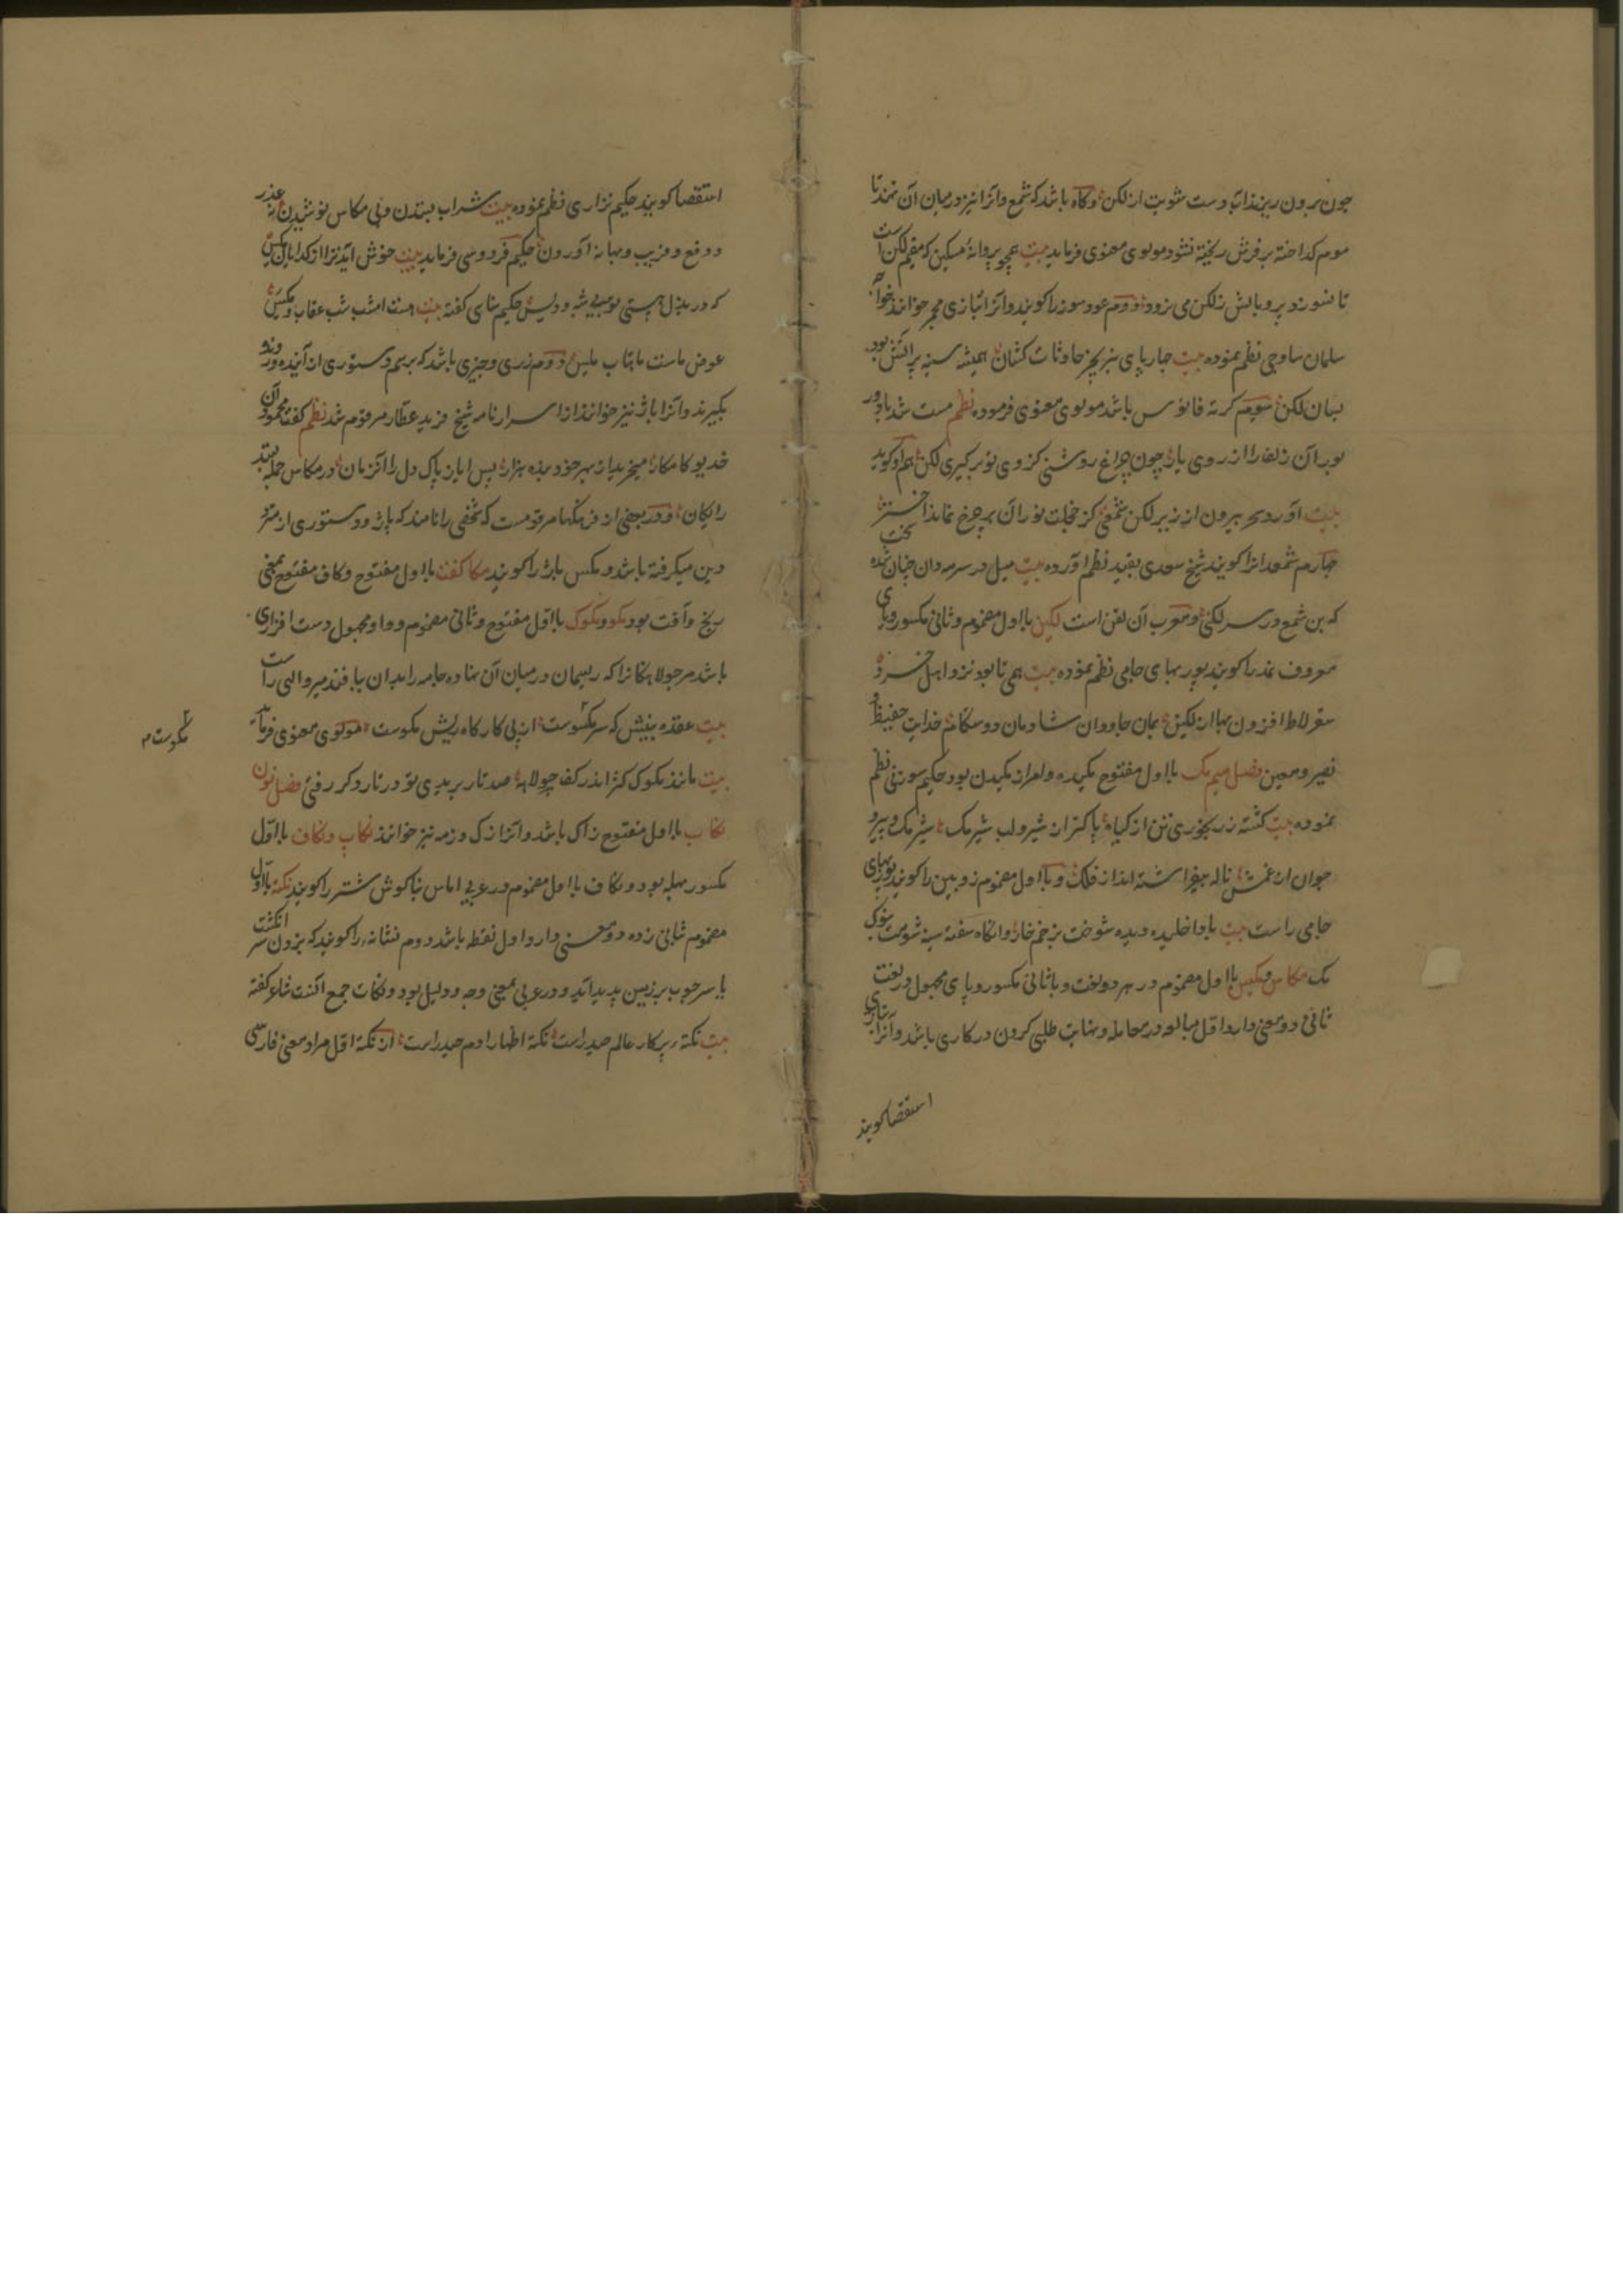 چون برون ریزند آب دست شوت از لکن وکاه باشد که شمع وآنرا نیز در میان آن نهند تا
موم کداخته بر فرش ریخته نشود مولوی معنوی فرماید بیت همچو پروانه مسکین که مقیم لکن است
تا نسوزد پر و بالش ز لکن می نرود دوم عود سوز را کویند وآنرا بتازی مجمر خوانند خواجه
سلمان ساوجی نظم نموده بیت حادثات کشان همیشه سینه پر آتش بود
بسان لکن سیوم کرته فانوس باشد مولوی معنوی فرموده نظم مست شد باد و
آن زلف را از روی یار چون چراغ روشنی کز وی تو برکیری لکن هم او کوید
بیت آورد بیرون از زیر لکن شمعی کز خجلت نور آن بر چرخ نماند اختر
چهارم شمعدانرا کویند شیخ سعدی بقید نظم آورده بیت میل در سرمه دان چنان شده سخت
که بن شمع در سر لکنی ومعرب آن لقن است لکین با اول مضموم و ثانی مکسور و یای
معروف نمد را کویند پور بهای جامی نظم نموده بیت همی تا بود نزد اهل خرد
سقرلاط افزون بها از لکین بمان جاودان شادمان دوستکام خدایت حفیظ و
نصیر و معین فصل میم مک با اول مفتوح مکیدن بود حکیم سوزنی نظم
نموده بیت کشته ز رنجوری تن از کیاه پاکتر از شیر و لب شیر مک شیر مک و پیر و
جوان از غمش ناله برافراشته اند از فلک و با اول مضموم زوبین را کویند پور بهای
جامی راست بیت بادا خلیده دیده شوخت بزخم خار وانکاه سفته سینه شومت بنوک
مک مکاس ومکیس با اول مضموم در هر دو لغت و با ثانی مکسور و یای مجهول در لغت
ثانی دو معنی دارد اول مبالغه در معامله ونهایت طلبی کردن در کاری باشد وآنرا بتازی
استقصا کویند
استقصا کویند حکیم نزاری نظم نموده بیت شراب بستدن و بی مکاس نوشیدن به عذر
و دفع و فریب و بهانه آوردن حکیم فردوسی فرماید بیت خوش آید ترا از کدایان مکیس
که در بذل هستی تو بیشه و دلیس حکیم سنای کفته بیت هست امشب شب عقاب و مکیس
عوض ماست ماهتاب ملیس دوم زری و چیزی باشد که برسم دستوری از آینده ورونده
بکیرند وآنرا باژ نیز خوانند از اسرار نامه شیخ فرید عطار مرقوم شد نظم کفت محمود آن
خدیو کامکار میخرید از بهر خود بنده هزار پس ایاز پاک دل را آنزمان در مکاس جمله بستد
رایکان ودر بعضی از فرهنکها مرقومست که شخصی را نامند که باژ و دستوری از متردد
دین میکرفته باشد ومکس باژ را کویند مکا کفت با اول مفتوح وکاف مفتوح بمعنی
رنج وآفت بود مکو ومکوک با اول مفتوح و ثانی مضموم و واو مجهول دست افزاری
باشد مر جولاهکانرا که ریسمان در میان آن نهاده جامه را بدان ببافند میر والهی راست
بیت عقده بینیش که سر مکوست از پی کار کاه ریش مکوست مولوی معنوی فرماید
مکوست
بیت مانند مکوک کژ اندر کف جولاهه صد تار بریدی تو در تار دکر رفتی فصل نون
نکاب با اول مفتوح زاک باشد وآنرا زک و زمه نیز خوانند نکاپ ونکاف با اول
مکسور بهله بود و نکاف با اول مضموم در عربی اماس بناکوش شتر را کویند نکته با اول
مضموم ثانی زده دو معنی دارد اول نقطه باشد دوم نشانه را کویند که بزدن سر انکشت
یا سر چوب بر زمین پدید آید و در عربی بمعنی وجه و دلیل بود و نکات جمع آنست شاعر کفته
بیت نکته پرکار عالم حیدر است نکته اظهار آدم حیدر است از نکته اول مراد معنی فارسی